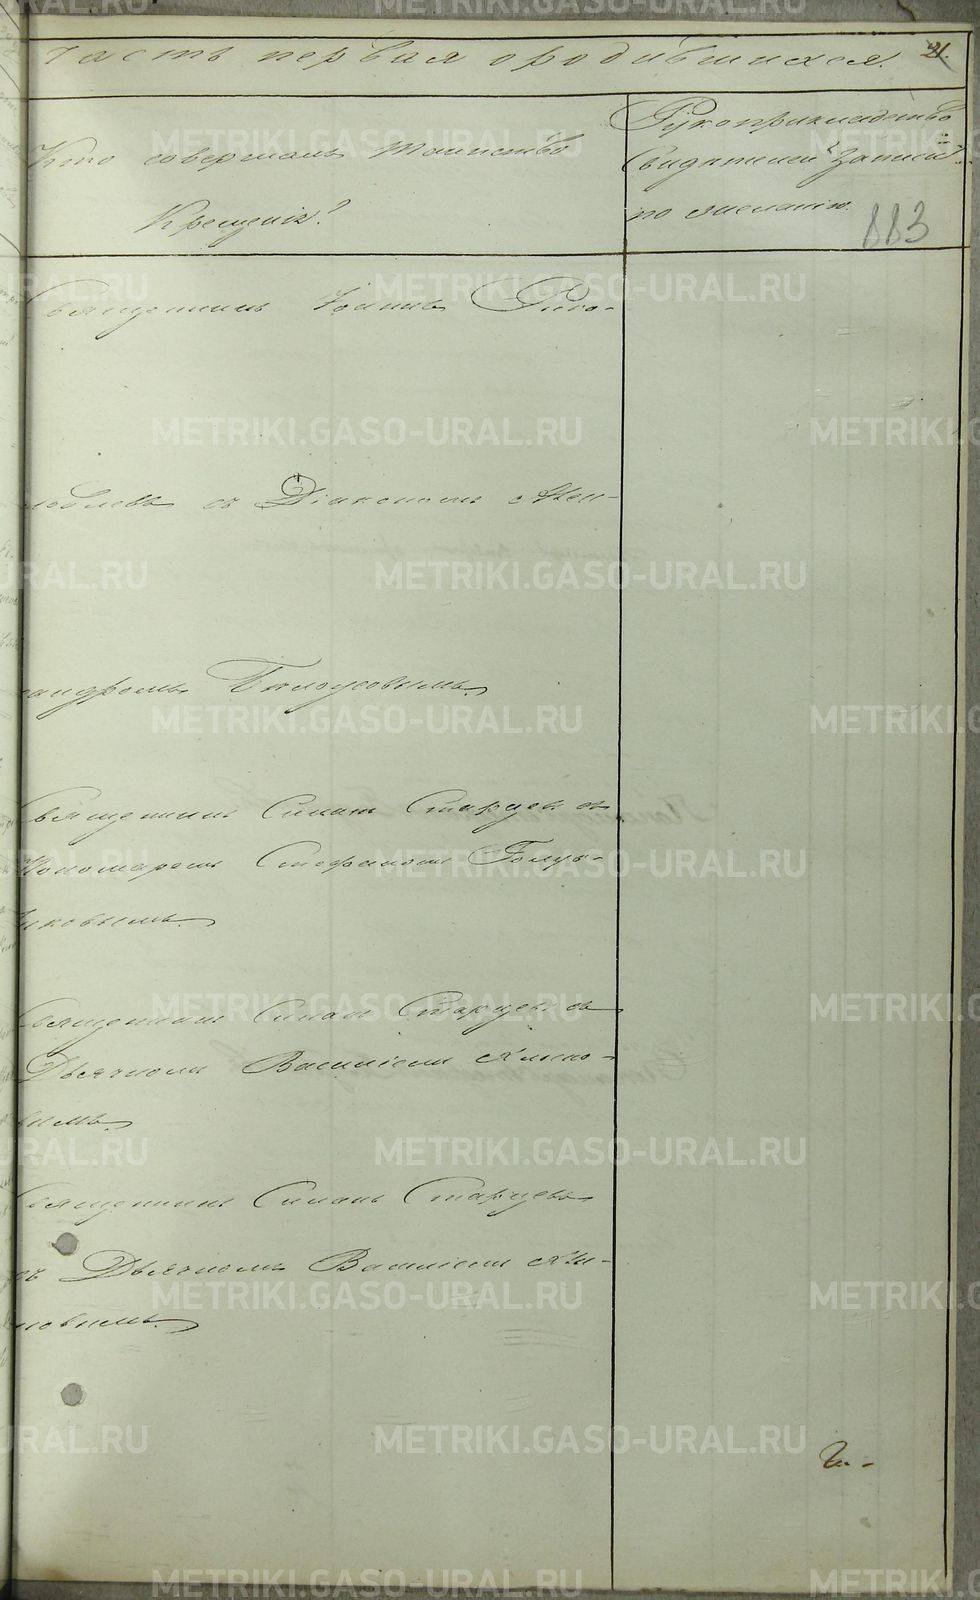 часть первая о родившихся. 21.
Кто совершалъ Таинство
Крещенія?
Рукоприкладство
Свидѣтелей Записи
по желанію.
883
Священникъ Іоаннъ
съ Діакономъ Алек-
сандромъ Бѣлоусовымъ.
Священникъ Симонъ Старцевъ съ
Пономаремъ Стефаномъ Голуб-
чиковымъ.
Священникъ Симонъ Старцевъ съ
Дьячкомъ Василіемъ
Священникъ Симонъ Старцевъ
съ Дьячкомъ Василіемъ
METRIKI.GASO-URAL.RU